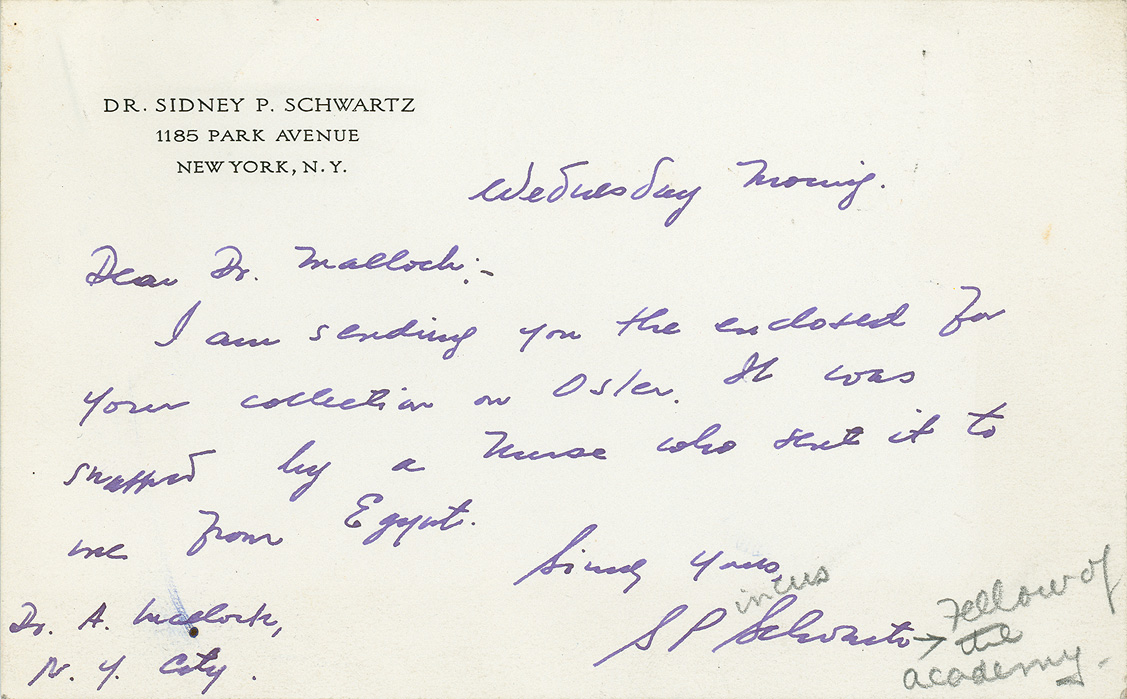 DR. SIDNEY P. SCHWARTZ
1185 PARK AVENUE
NEW YORK, N.Y.
Wednesday Morning.
Dear Dr. Malloch:-
I am sending you the enclosed for
your collection on Osler. It was
snapped by a nurse who sent it to
me from Egypt.
Sincerely Yours
S P Schwartz → Fellow of
the
academy.
Dr. A. Malloch,
N. Y. City.